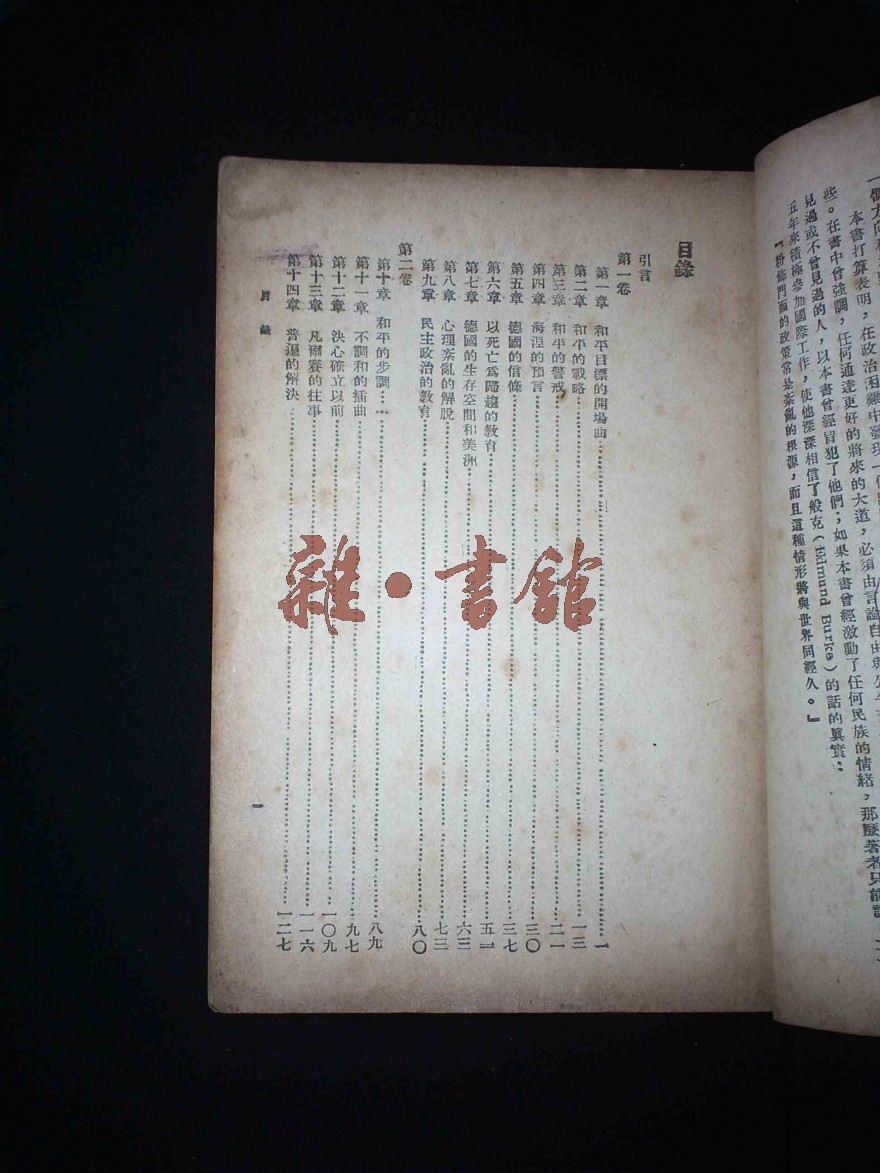 一個方向和
本書打算表明,在政治困難中發現一個
些。在書中曾强調,任何通達更好的將來的大道,必須由言論自由與公
見過或不曾見過的人,以本書曾經冒犯了他們;如果本書曾經激動了任何民族的情緒,那麽著者只能說
五年來積極參加國際工作,使他深深相信了般克(Edmund Burke)的話的眞實:
『粉飾門面的政策常是紊亂的根源,而且這種情形將與世界同經久。』
目錄
引言
第一卷
第一章 和平目標的開場曲……一
第二章 和平的戰略……一三
第三章 和平的警戒……二一
第四章 海涅的預言……三〇
第五章 德國的信條……三七
第六章 以死亡爲歸趨的教育……五一
第七章 德國的生存空間和美洲……六三
第八章 心理紊亂的解脫……七三
第九章 民主政治的教育……八〇
第二卷
第十章 和平的步調……八九
第十一章 不調和的插曲……九七
第十二章 決心確立以前……一〇九
第十三章 凡爾賽的往事……一一六
第十四章 普遍的解決……一二七
目錄
一
雜·書館